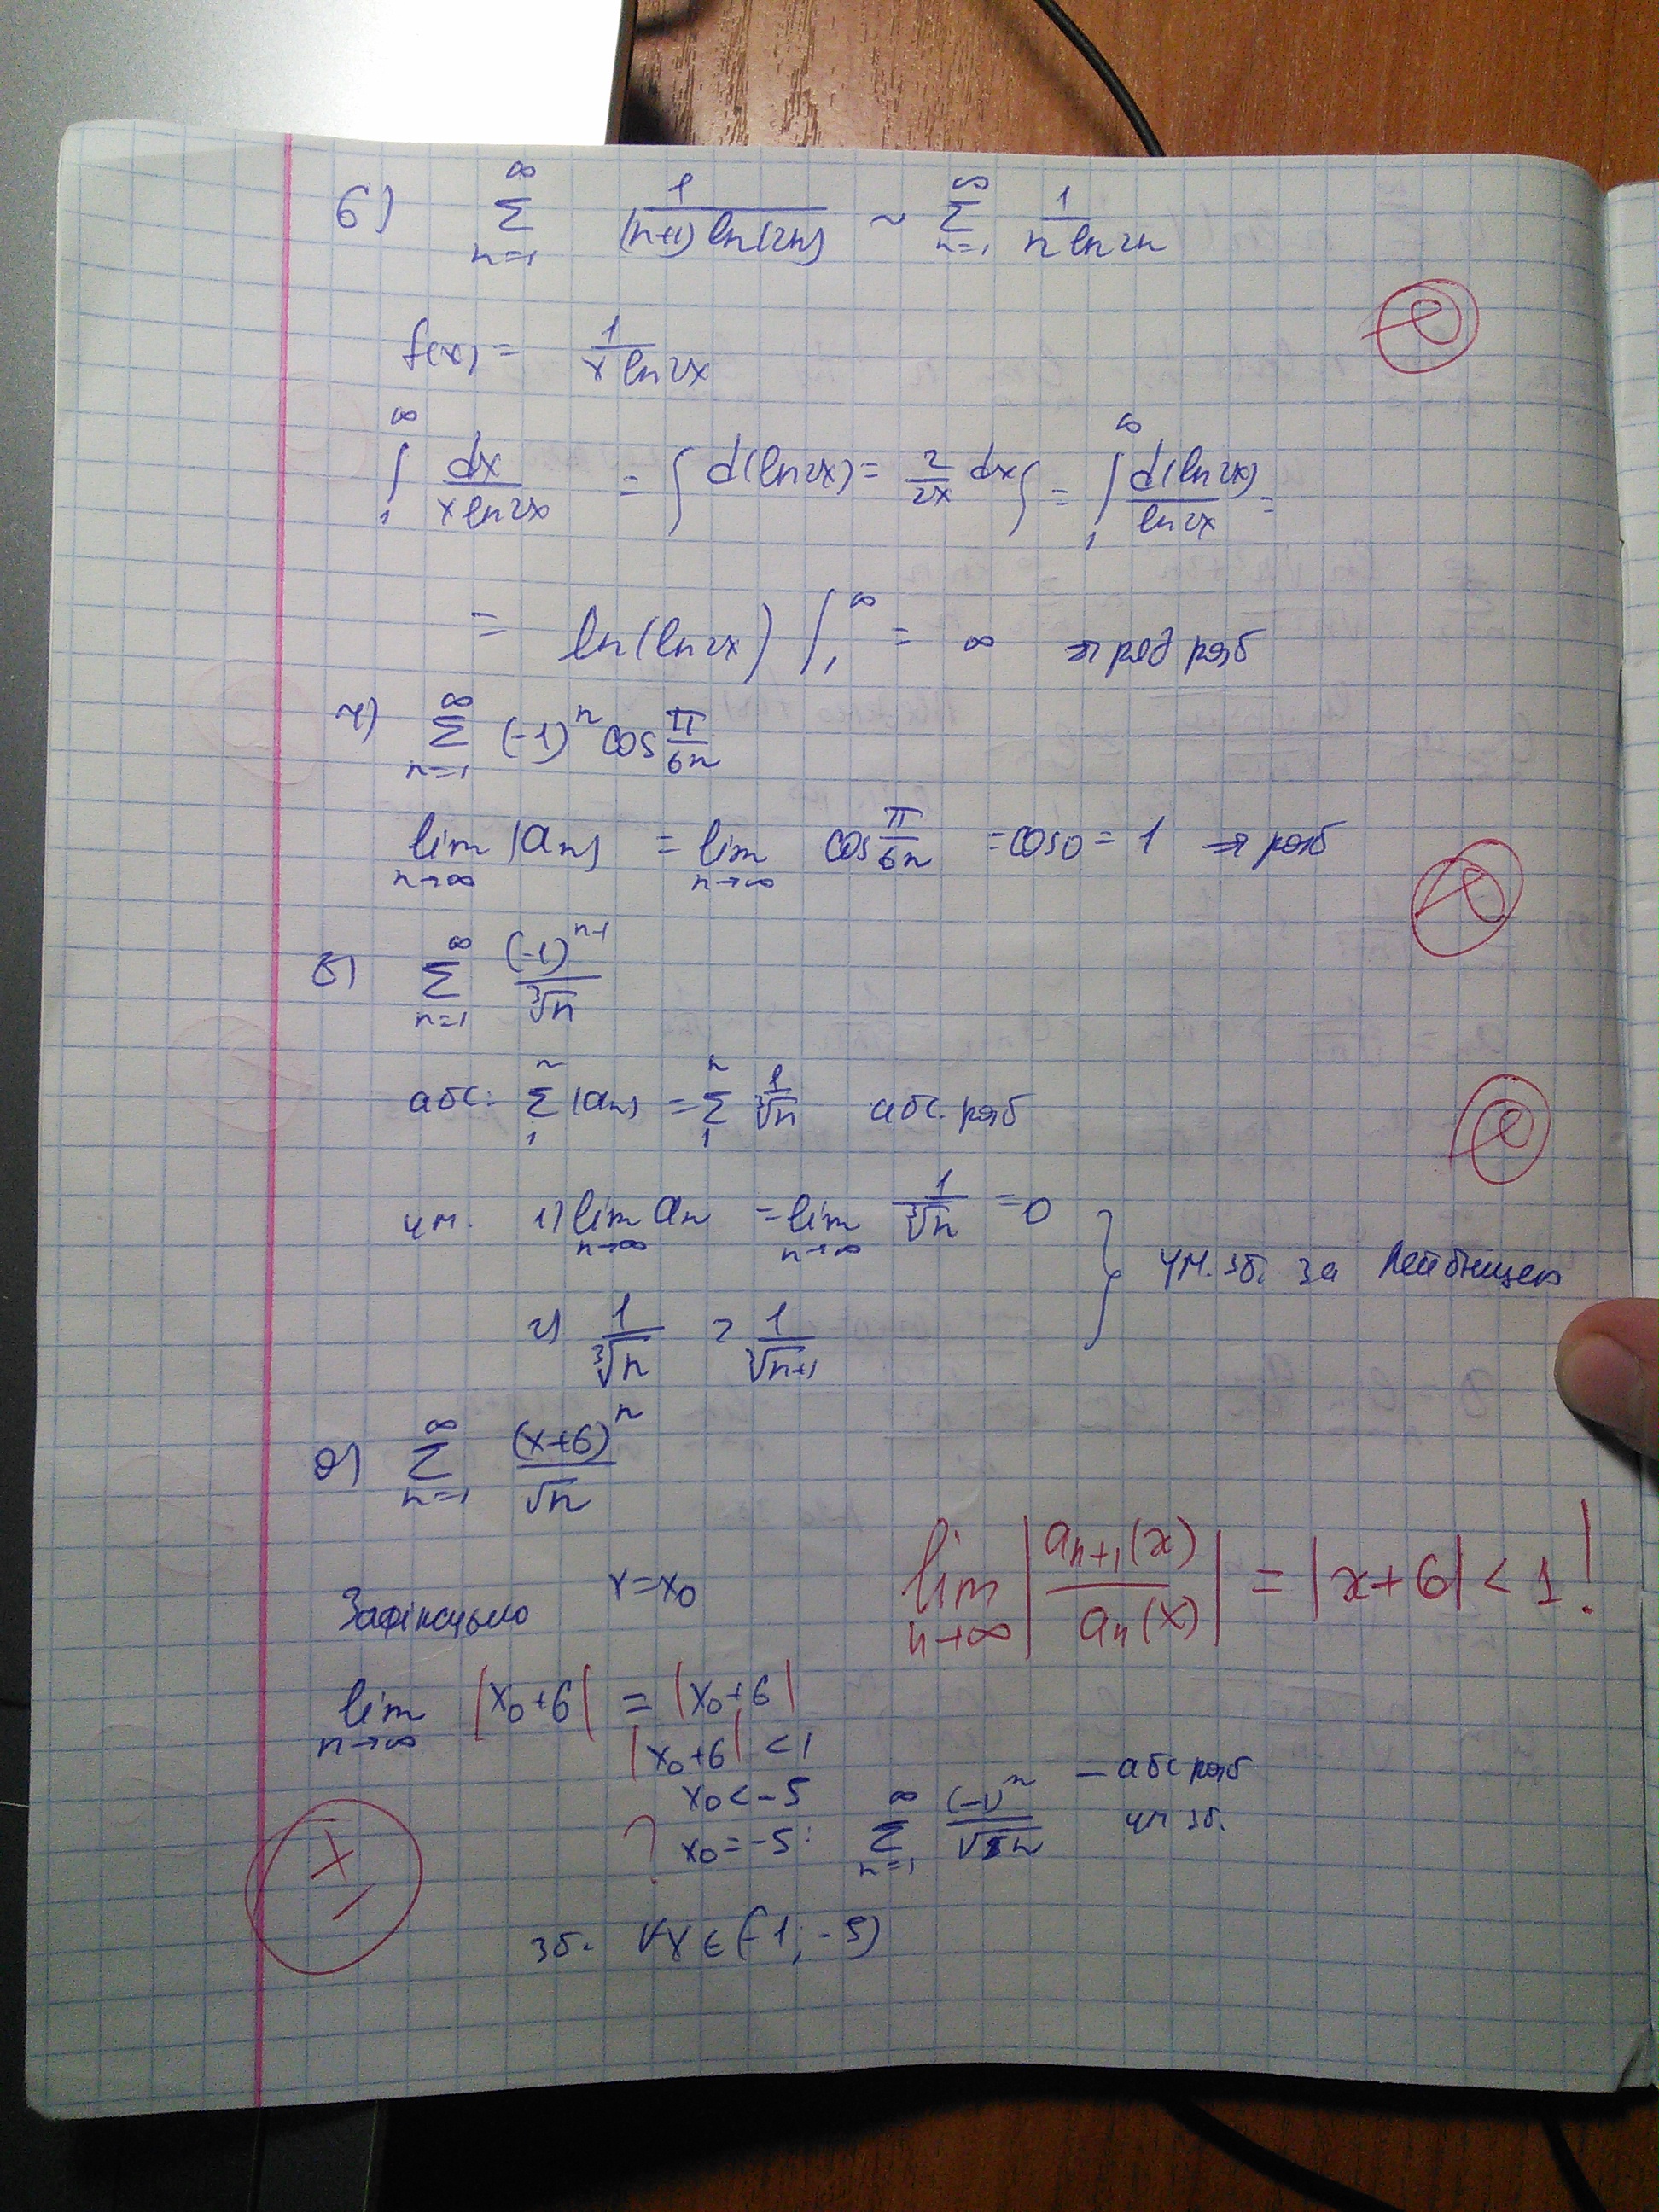 6) ∑_{n=1}^{∞} 1/((n+1) ln(2n)) ~ ∑_{n=1}^{∞} 1/(n ln 2n)
f(x) = 1/(x ln 2x)
∫_1^∞ dx/(x ln 2x) = { d(ln 2x) = 2/(2x) dx } = ∫_1^∞ d(ln 2x)/(ln 2x) =
= ln(ln 2x) |_1^∞ = ∞ ⇒ ряд розб
7) ∑_{n=1}^{∞} (-1)^n cos π/(6n)
lim_{n→∞} |a_n| = lim_{n→∞} cos π/(6n) = cos 0 = 1 ⇒ розб
8) ∑_{n=1}^{∞} (-1)^{n-1}/∛n
абс: ∑_1^n |a_n| = ∑_1^n 1/∛n абс. розб
ум. 1) lim_{n→∞} a_n = lim_{n→∞} 1/∛n = 0
} ум. зб. за Лейбницем
2) 1/∛n > 1/∛(n+1)
9) ∑_{n=1}^{∞} (x+6)^n/√n
lim_{n→∞} |a_{n+1}(x)/a_n(x)| = |x+6| < 1!
Зафіксуємо x = x_0
lim_{n→∞} |x_0+6| = |x_0+6|
|x_0+6| < 1
x_0 < -5
? x_0 = -5: ∑_{n=1}^{∞} (-1)^n/√n — абс розб
ум зб.
∓
зб. ∀x ∈ (-1; -5)